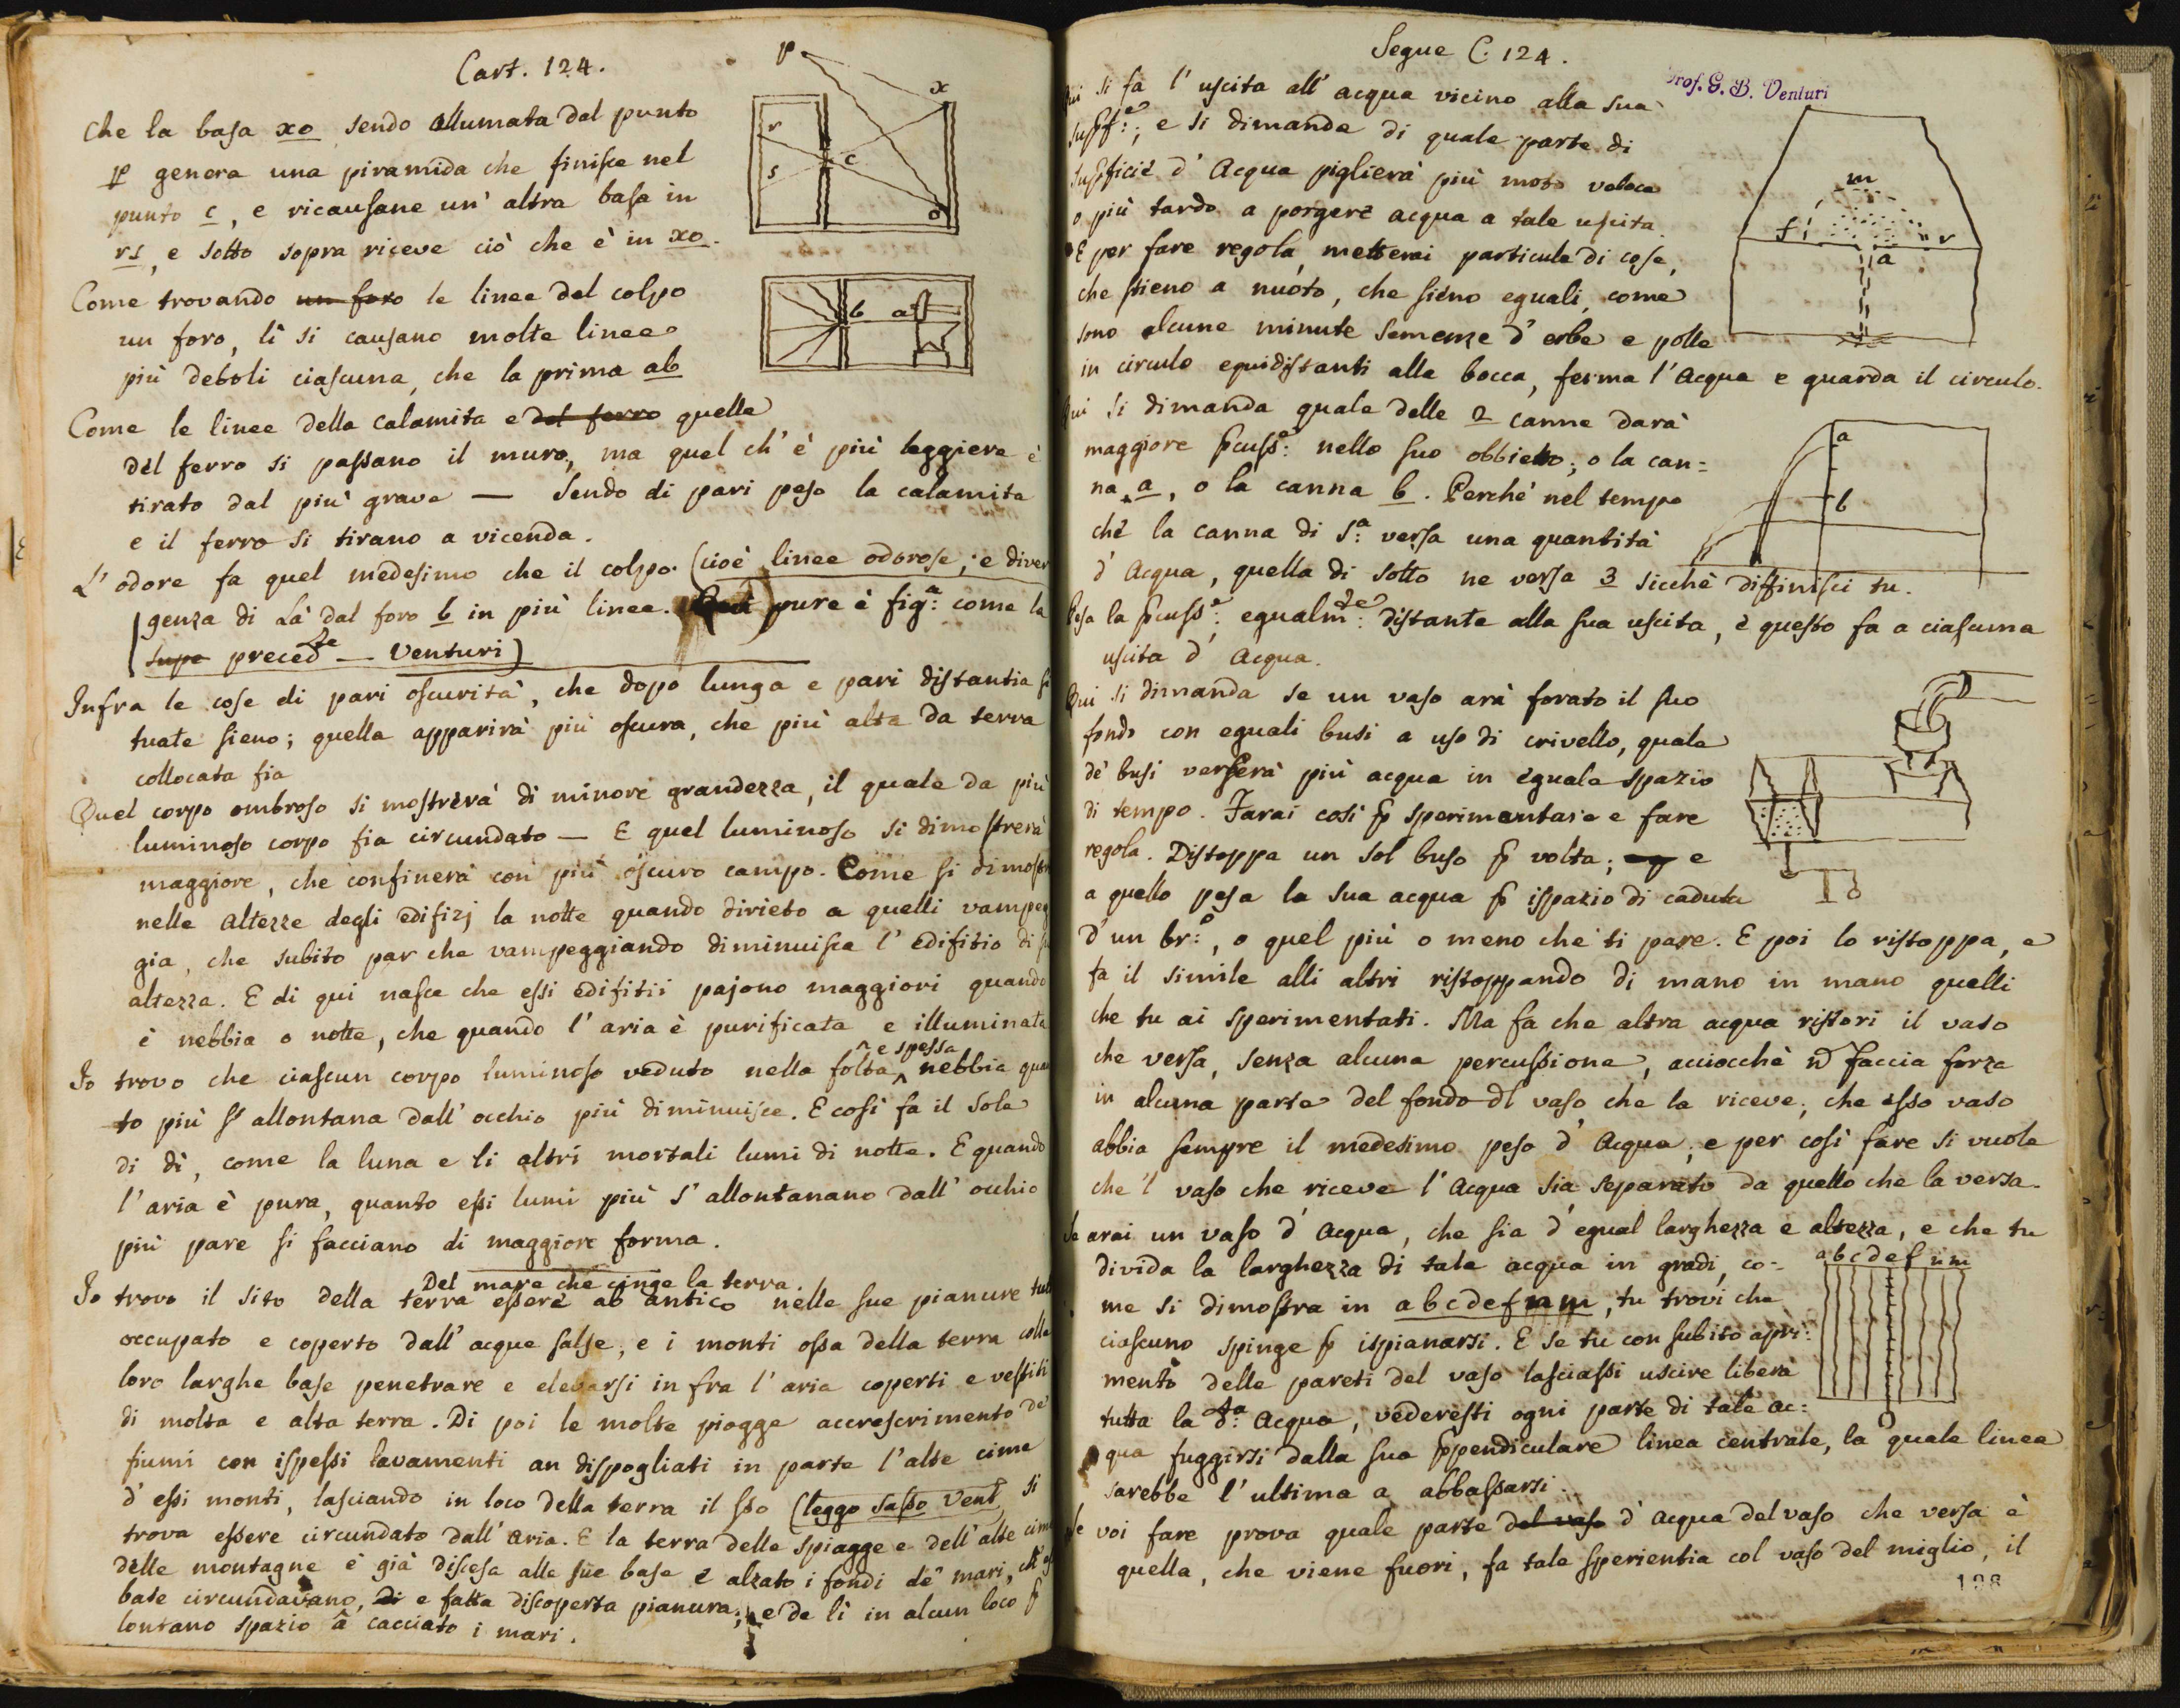 Cart. 124.
che la basa xo sendo allumata dal punto
p genera una piramida che finisce nel
punto c, e ricausane un' altra basa in
rs, e sotto sopra riceve ciò che è in xo.
Come trovando un foro le linee del colpo
un foro, lì si causano molte linee
più deboli ciascuna, che la prima ab
Come le linee della calamita e del ferro quelle
del ferro si passano il muro, ma quel ch' è più leggiere è
tirato dal più grave — Sendo di pari peso la calamita
e il ferro si tirano a vicenda.
L' odore fa quel medesimo che il colpo. (cioè linee odorose, e diver
genza di là dal foro b in più linee. pure è fig.a come la
supe preced.te — Venturi)
Infra le cose di pari oscurità, che dopo lunga e pari distantia si
tuate sieno; quella apparirà più oscura, che più alta da terra
collocata fia
Quel corpo ombroso si mostrerà di minore grandezza, il quale da più
luminoso corpo fia circundato — E quel luminoso si dimostrerà
maggiore, che confinerà con più oscuro campo. Come si dimostr
nelle altezze degli edifizj la notte quando dirieto a quelli vampeg
gia, che subito par che vampeggiando diminuisca l' edifitio di su
altezza. E di qui nasce che essi edifitii pajono maggiori quando
è nebbia o notte, che quando l' aria è purificata e illuminata
Io trovo che ciascun corpo luminoso veduto nella folta ^ e spessa nebbia quan
to più s' allontana dall' occhio più diminuisce. E così fa il Sole
di dì, come la luna e li altri mortali lumi di notte. E quando
l' aria è pura, quanto essi lumi più s' allontanano dall' occhio
più pare si facciano di maggiore forma.
Del mare che cinge la terra.
Io trovo il sito della terra essere ab antico nelle sue pianure tutto
occupato e coperto dall' acque salse, e i monti ossa della terra colle
loro larghe base penetrare e elevarsi in fra l' aria coperti e vestiti
di molta e alta terra. Di poi le molte piogge accrescimento de'
fiumi con ispessi lavamenti an dispogliati in parte l' alte cime
d' essi monti, lasciando in loco della terra il sso (leggo sasso Vent si
trova essere circundato dall' aria. E la terra delle spiagge e dell' alte cime
delle montagne è già discesa alle sue base e alzato i fondi de' mari, ch' es
base circundavano, di e fatta discoperta pianura; e da lì in alcun loco p
lontano spazio â cacciato i mari.
p
x
r
s
c
o
b a
Segue C. 124.
Prof. G. B. Venturi
Qui si fa l' uscita all' acqua vicino alla sua
supf:e; e si dimanda di quale parte di
supficiè d' Acqua piglierà più moto veloce
o più tardo a porgere acqua a tale uscita.
E per fare regola, metterai particule di cose,
che stieno a nuoto, che sieno eguali, come
sono alcune minute semenze d' erbe e polle
in circulo equidistanti alla bocca, ferma l' Acqua e guarda il circulo.
Qui si dimanda quale delle 2 canne darà
maggiore pcuss:e nello suo obbietto; o la can=
na a, o la canna b. Perchè nel tempo
chè la canna di s:a versa una quantità
d' Acqua, quella di sotto ne versa 3 sicchè diffinisci tu.
Pesa la pcuss:e egualm:te distante alla sua uscita, e questo fa a ciascuna
uscita d' Acqua.
Qui si dimanda se un vaso arà forato il suo
fondo con eguali busi a uso di crivello, quale
de' busi verserà più acqua in eguale spazio
di tempo. Farai così p sperimentare e fare
regola. Distoppa un sol buso p volta; e
a quello pesa la sua acqua p ispazio di caduta
d' un br:o, o quel più o meno che ti pare. E poi lo ristoppa, e
fa il simile alli altri ristoppando di mano in mano quelli
che tu ai sperimentati. Ma fa che altra acqua ristori il vaso
che versa, senza alcuna percussione, acciocchè n̄ faccia forza
in alcuna parte del fondo dl vaso che la riceve, che esso vaso
abbia sempre il medesimo peso d' Acqua; e per così fare si vuole
che 'l vaso che riceve l' Acqua sia separato da quello che la versa.
Se arai un vaso d' acqua, che sia d' egual larghezza e altezza, e che tu
divida la larghezza di tale acqua in gradi, co-
me si dimostra in abcdefnm, tu trovi che
ciascuno spinge p ispianarsi. E se tu con subito apri=
mento delle pareti del vaso lasciassi uscire libera
tutta la d:a Acqua, vederesti ogni parte di tale ac=
qua fuggirsi dalla sua ppendiculare linea centrale, la quale linea
sarebbe l' ultima a abbassarsi.
Se voi fare prova quale parte del vaso d' acqua del vaso che versa è
quella, che viene fuori, fa tale sperientia col vaso del miglio, il
m
f
r
a
a
b
a b c d e f n m
198